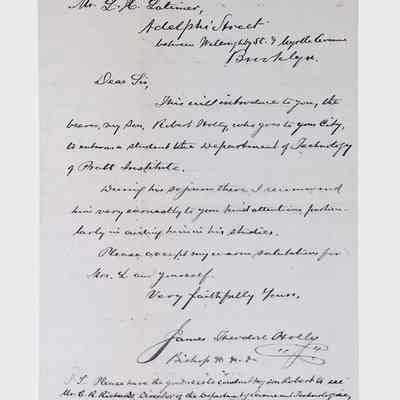 Mr. L. H. Latimer,
Adelphi Street
between Willoughby St. & Myrtle Avenue
Brooklyn.
Dear Sir,
This will introduce to you, the
bearer, my son, Robert Holly, who goes to your City,
to enter as a student the Department of Technology
of Pratt Institute.
During his sojourn there, I recommend
him very earnestly to your kind attention, particu-
larly in aiding him in his studies.
Please accept my warm salutations for
Mrs. L and yourself.
Very faithfully Yours,
James Theodore Holly
Bishop
P.S. Please have the goodness to conduct my son Robert to see
Mr. C. R. Richards, Director of the Department of Science and Technology,